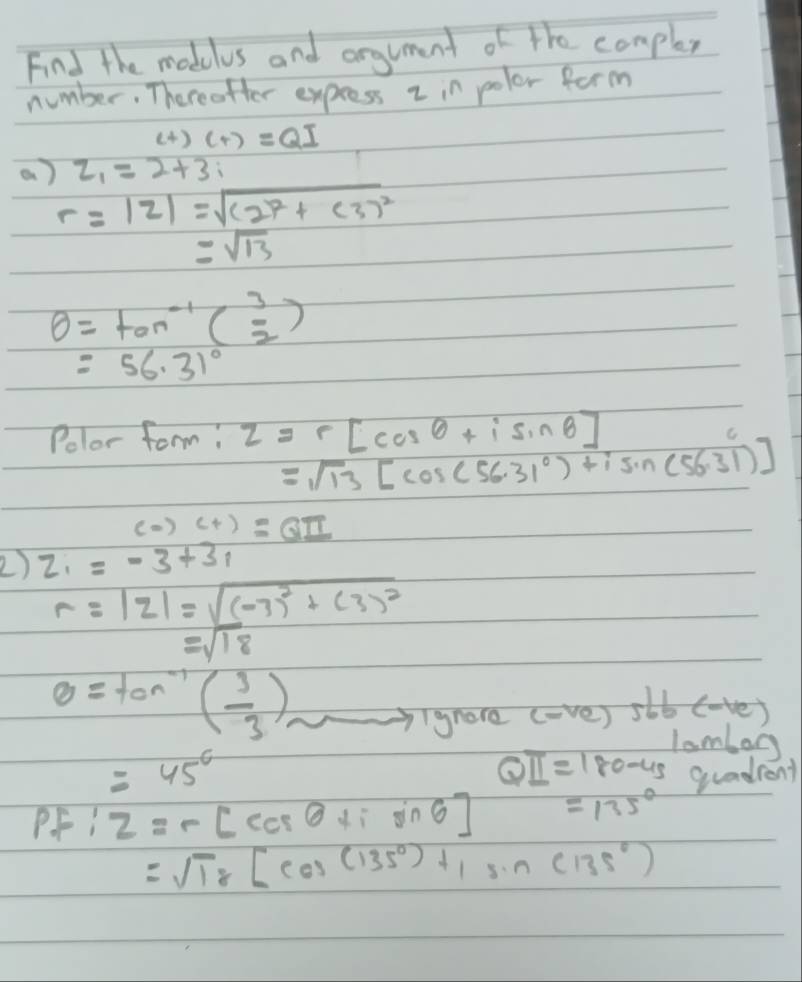 Find the modulus and argument of the complex
number. Thereafter express z in polar form
(+) (+) = QI
a) z₁ = 2+3i
r = |z| = √(2)² + (3)²
= √13
θ = tan⁻¹ (3/2)
= 56.31°
Polar form: z = r [cos θ + i sin θ]
= √13 [cos (56.31°) + i sin (56.31°)]
(-) (+) = QII
2) z₁ = -3+3i
r = |z| = √(-3)² + (3)²
= √18
θ = tan⁻¹ (3/3) → ignore (-ve) sbb (-ve)
lambang
= 45° QII = 180-45 quadrant
PF : z = r [cos θ + i sin θ] = 135°
= √18 [cos (135°) + i sin (135°)